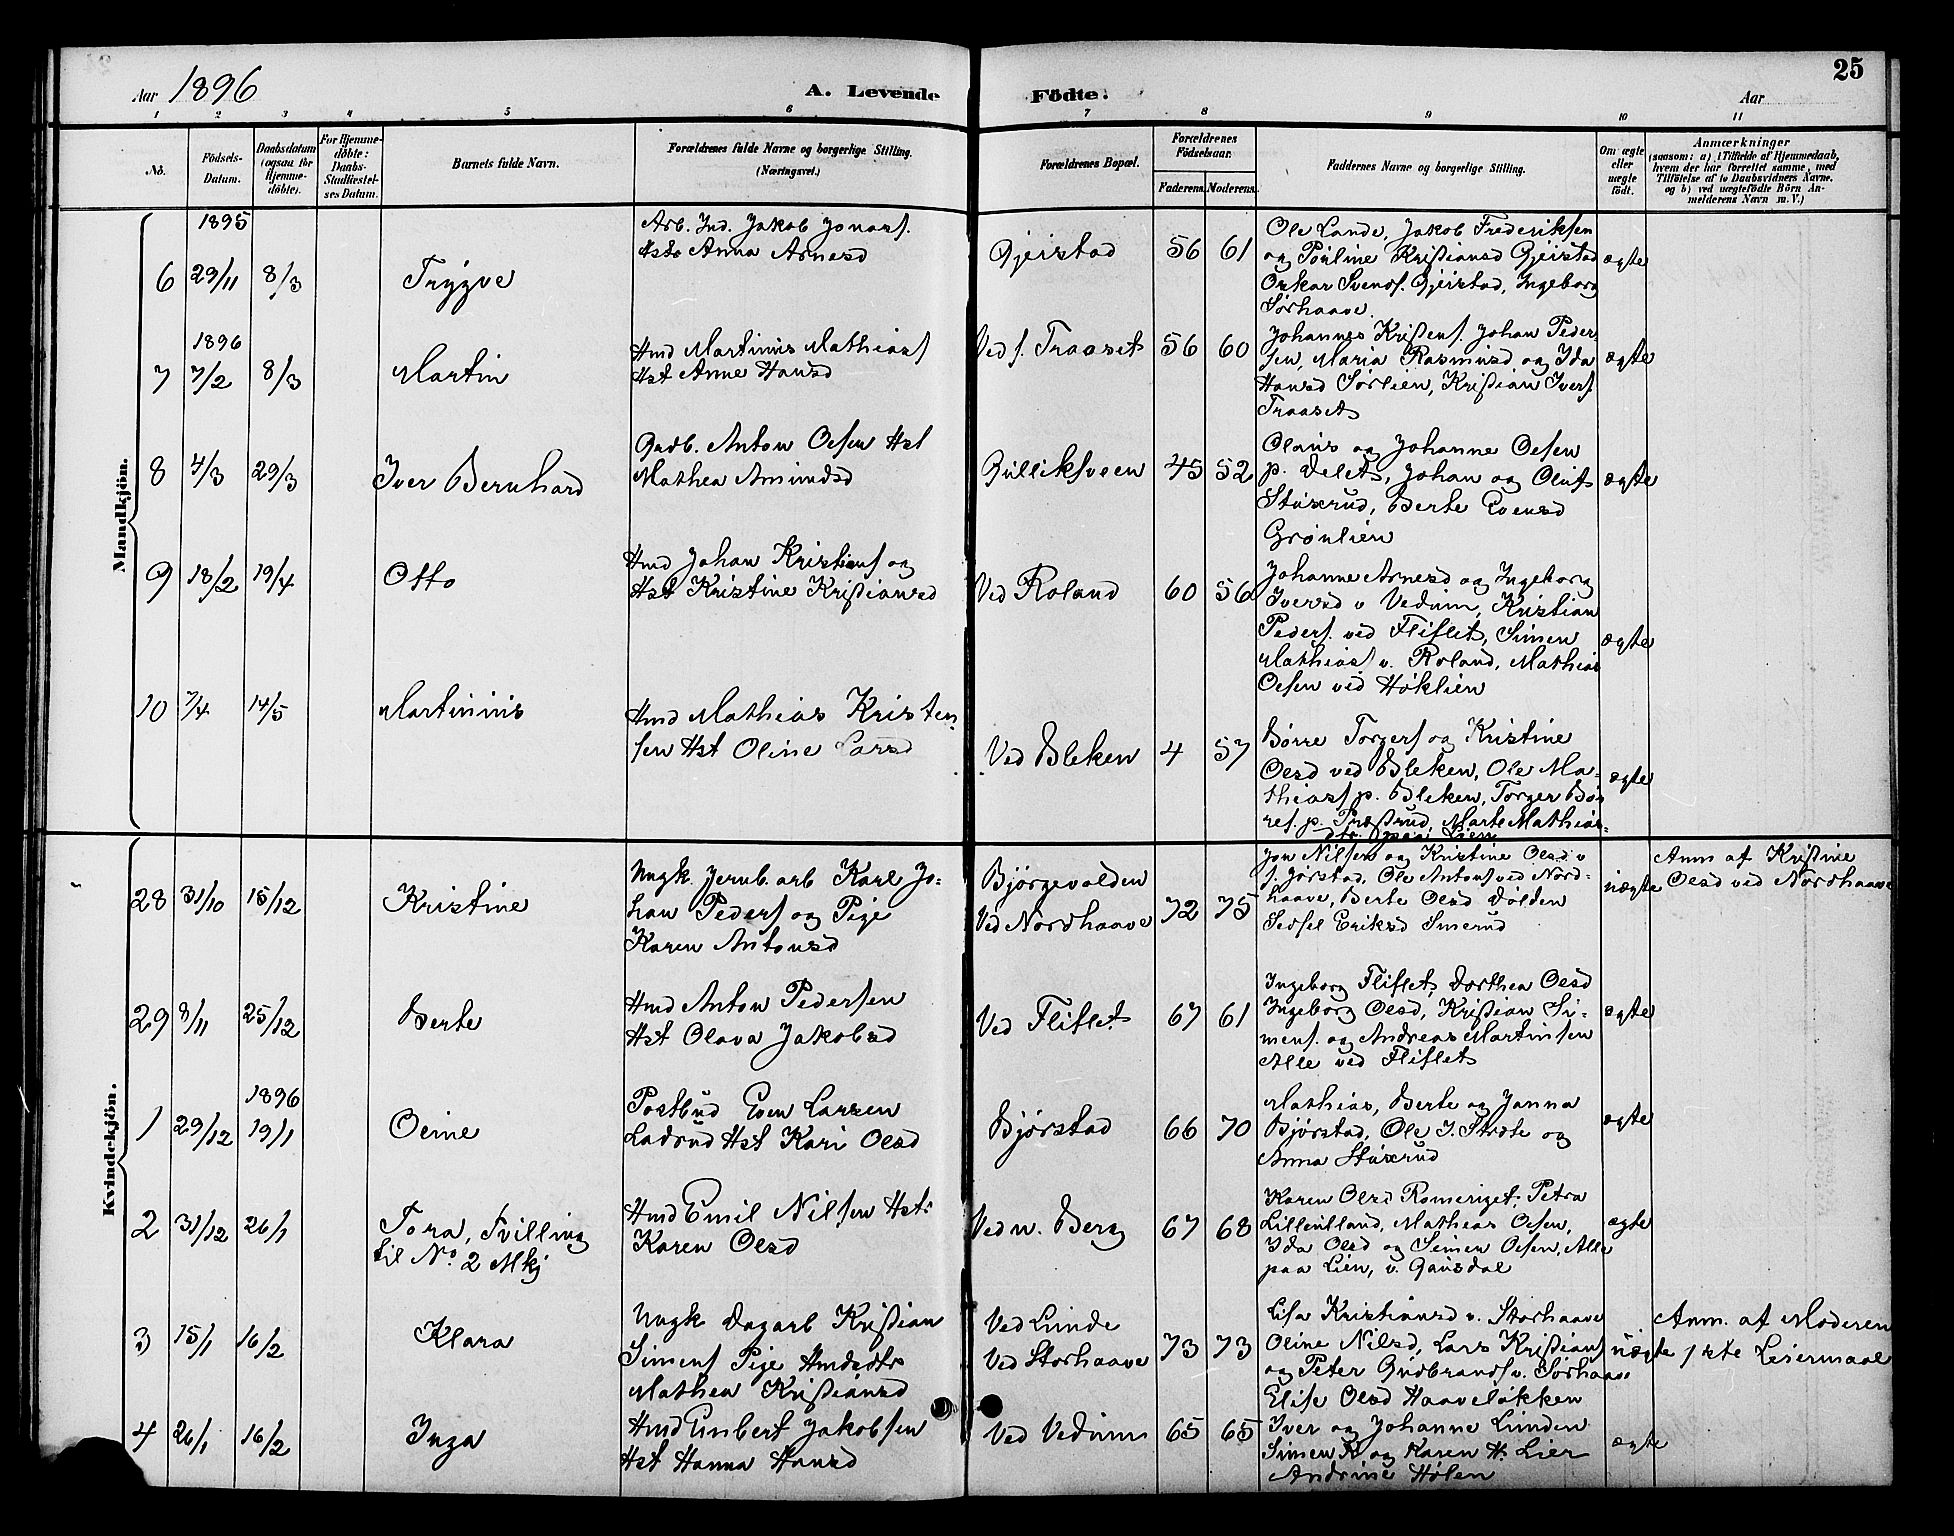 Aar 1896
A. Levende Fødte.
25
Aar
1 2 3 4 5 6 7 8 9 10 11
No.
Födsels-Datum.
Daabsdatum (ogsaa for Hjemme-döbte).
For Hjemme-döbte: Daabs-Stadfæstel-ses Datum.
Barnets fulde Navn.
Forældrenes fulde Navne og borgerlige Stilling.
(Næringsvei.)
Forældrenes Bopæl.
Forældrenes Födselsaar.
Faderens. Moderens.
Faddernes Navne og borgerlige Stilling.
Om ægte eller uægte födt.
Anmærkninger
(saasom: a) i Tilfælde af Hjemmedaab,
hvem der har forrettet samme, med
Tilföielse af to Daabsvidners Navne,
og b) ved uægtefödte Börn An-
melderens Navn m. V.)
Mandkjön.
1895
6 29/11 8/3 Trygve
Arb. Ind. Jakob Jonass.
Hstr Anna Arnesd
Gjeistad 56 61
Ole Lande, Jakob Frederiksen
og Pauline Kristiansd Gjeistad
Oskar Svends. Gjeistad, Ingeborg
Sørhaave.
ægte
1896
7 7/2 8/3 Martin
Hmd Martinus Mathiass
Hst Anne Hansd
Ved s. Traaset 56 60
Johannes Kristens. Johan Peder
sen, Maria Rasmusd og Ida
Hansd Sørlien, Kristian Ivers.
Traaset
ægte
8 4/3 29/3 Iver Bernhard
Grdb. Anton Olsen Hst
Mathea Amundsd
Gulliksveen 45 52
Olaus og Johanne Olsen
p. Delet, Johan og Oluf
Stuxrud, Berte Evensd
Grønlien
ægte
9 18/2 19/4 Otto
Hmd Johan Kristians og
Hst Kristine Kristiansd
Ved Roland 60 56
Johanne Arnesd og Ingeborg
Iversd v Vedum, Kristian
Peders. ved Fliflet, Simen
Mathiass v. Roland, Mathias
Olsen ved Høklien
ægte
10 7/4 14/5 Martinus
Hmd Mathias Kristen-
sen Hst Oline Larsd
Ved Bleken 4 57
Børre Torgers og Kristine
Olsd ved Bleken, Ole Ma-
thiass p. Bleken, Torger Bør
res. p. Præstrud, Marte Mathias-
dtr. paa Lien
ægte
Kvindekjön.
28 31/10 15/12 Kristine
Ungk. Jernb. arb Karl Jo-
han Peders og Pige
Karen Antonsd
Bjørgevolden
Ved Nordhaave 72 75
Jon Nilsen og Kristine Olsd v
s. Jørstad, Ole Antons ved Nord-
haave, Berte Olsd Dolden
Sedsel Eriksd Smerud
uægte
Anm af Kristine
Olsd ved Nordhaave
29 8/11 25/12 Berte
Hmd Anton Pedersen
Hst Olava Jakobsd
Ved Fliflet 67 61
Ingeborg Fliflet, Dorthea Olsd
Ingeborg Olsd, Kristian Si-
mens. og Andreas Martinsen
Alle ved Fliflet
ægte
1896
1 29/12 19/1 Oline
Postbud Even Larsen
Ladsrud Hst Kari Olsd
Bjørstad 66 70
Mathias, Berte og Janna
Bjørstad, Ole J. Stræte og
Anna Stuxrud
ægte
2 31/12 26/1 Tora, Tvilling
til No. 2 Mkj
Hmd Emil Nilsen Hstr
Karen Olsd
Ved n. Berg 67 68
Karen Olsd Romeriget, Petra
Lilleulland, Mathias Olsen,
Ida Olsd og Simen Olsen, Alle
paa Lien, v. Gausdal
ægte
3 15/1 16/2 Klara
Ungk Dagarb Kristian
Simens Pige Hmdsdtr
Mathea Kristiansd
Ved Linde
Ved Storhaave 73 73
Lisa Kristiansd v. Storhaave
Oline Nilsd, Lars Kristians
og Peter Gudbrands v. Sørhaave
Elise Olsd Haaveløkken
uægte
Anm. af Moderen
1ste Leiermaal
4 26/1 16/2 Inga
Hmd Engbert Jakobsen
Hst Hanna Hansd
Ved Vedum 65 65
Iver og Johanne Linden
Simen K og Karen H. Lier
Andrine Holen
ægte